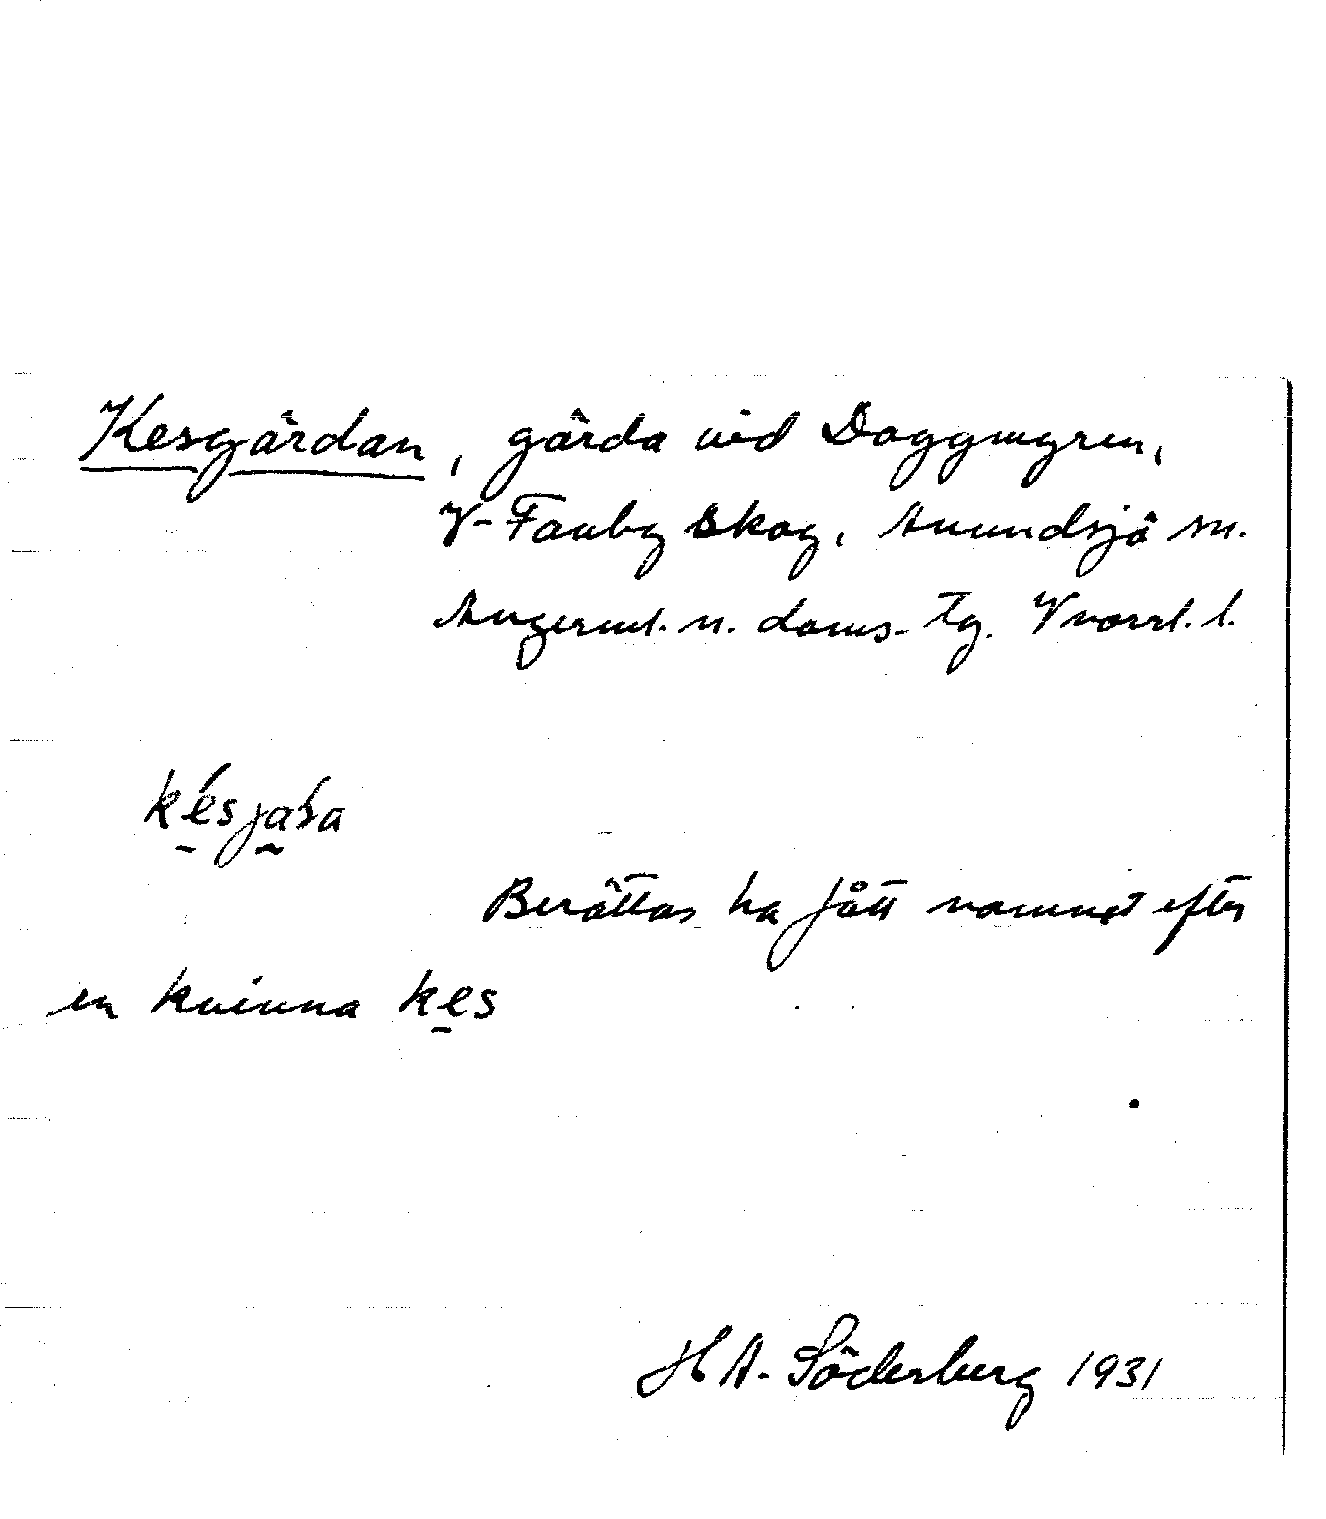 Kesgärdan, gärda vid Doggmyren,
V. Fanby skog, Anundsjö sn.
Ångerml. n. doms. tg. Vnorrl. l.
késjaʹra
Berättas ha fått namnet efter
en kvinna kes
H A. Söderberg 1931